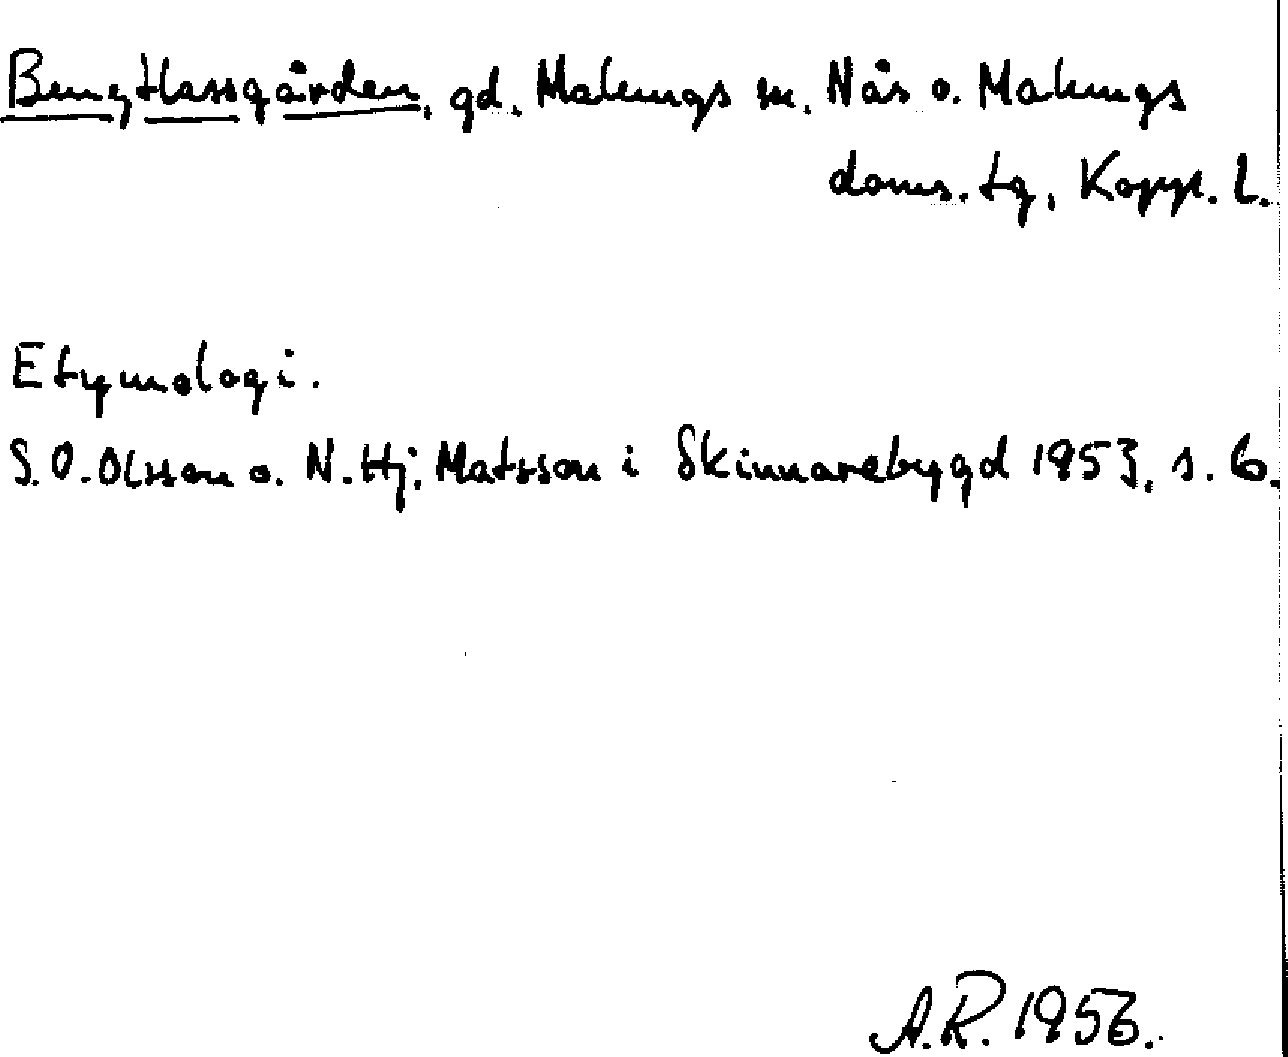 Bengtlassgården, gd. Malungs sn. Nås o. Malungs
doms. tg, Kopp. l.
Etymologi.
S. O. Olsson o. N. Hj. Matsson i Skinnarebygd 1953, s. 6.
A.R. 1956.